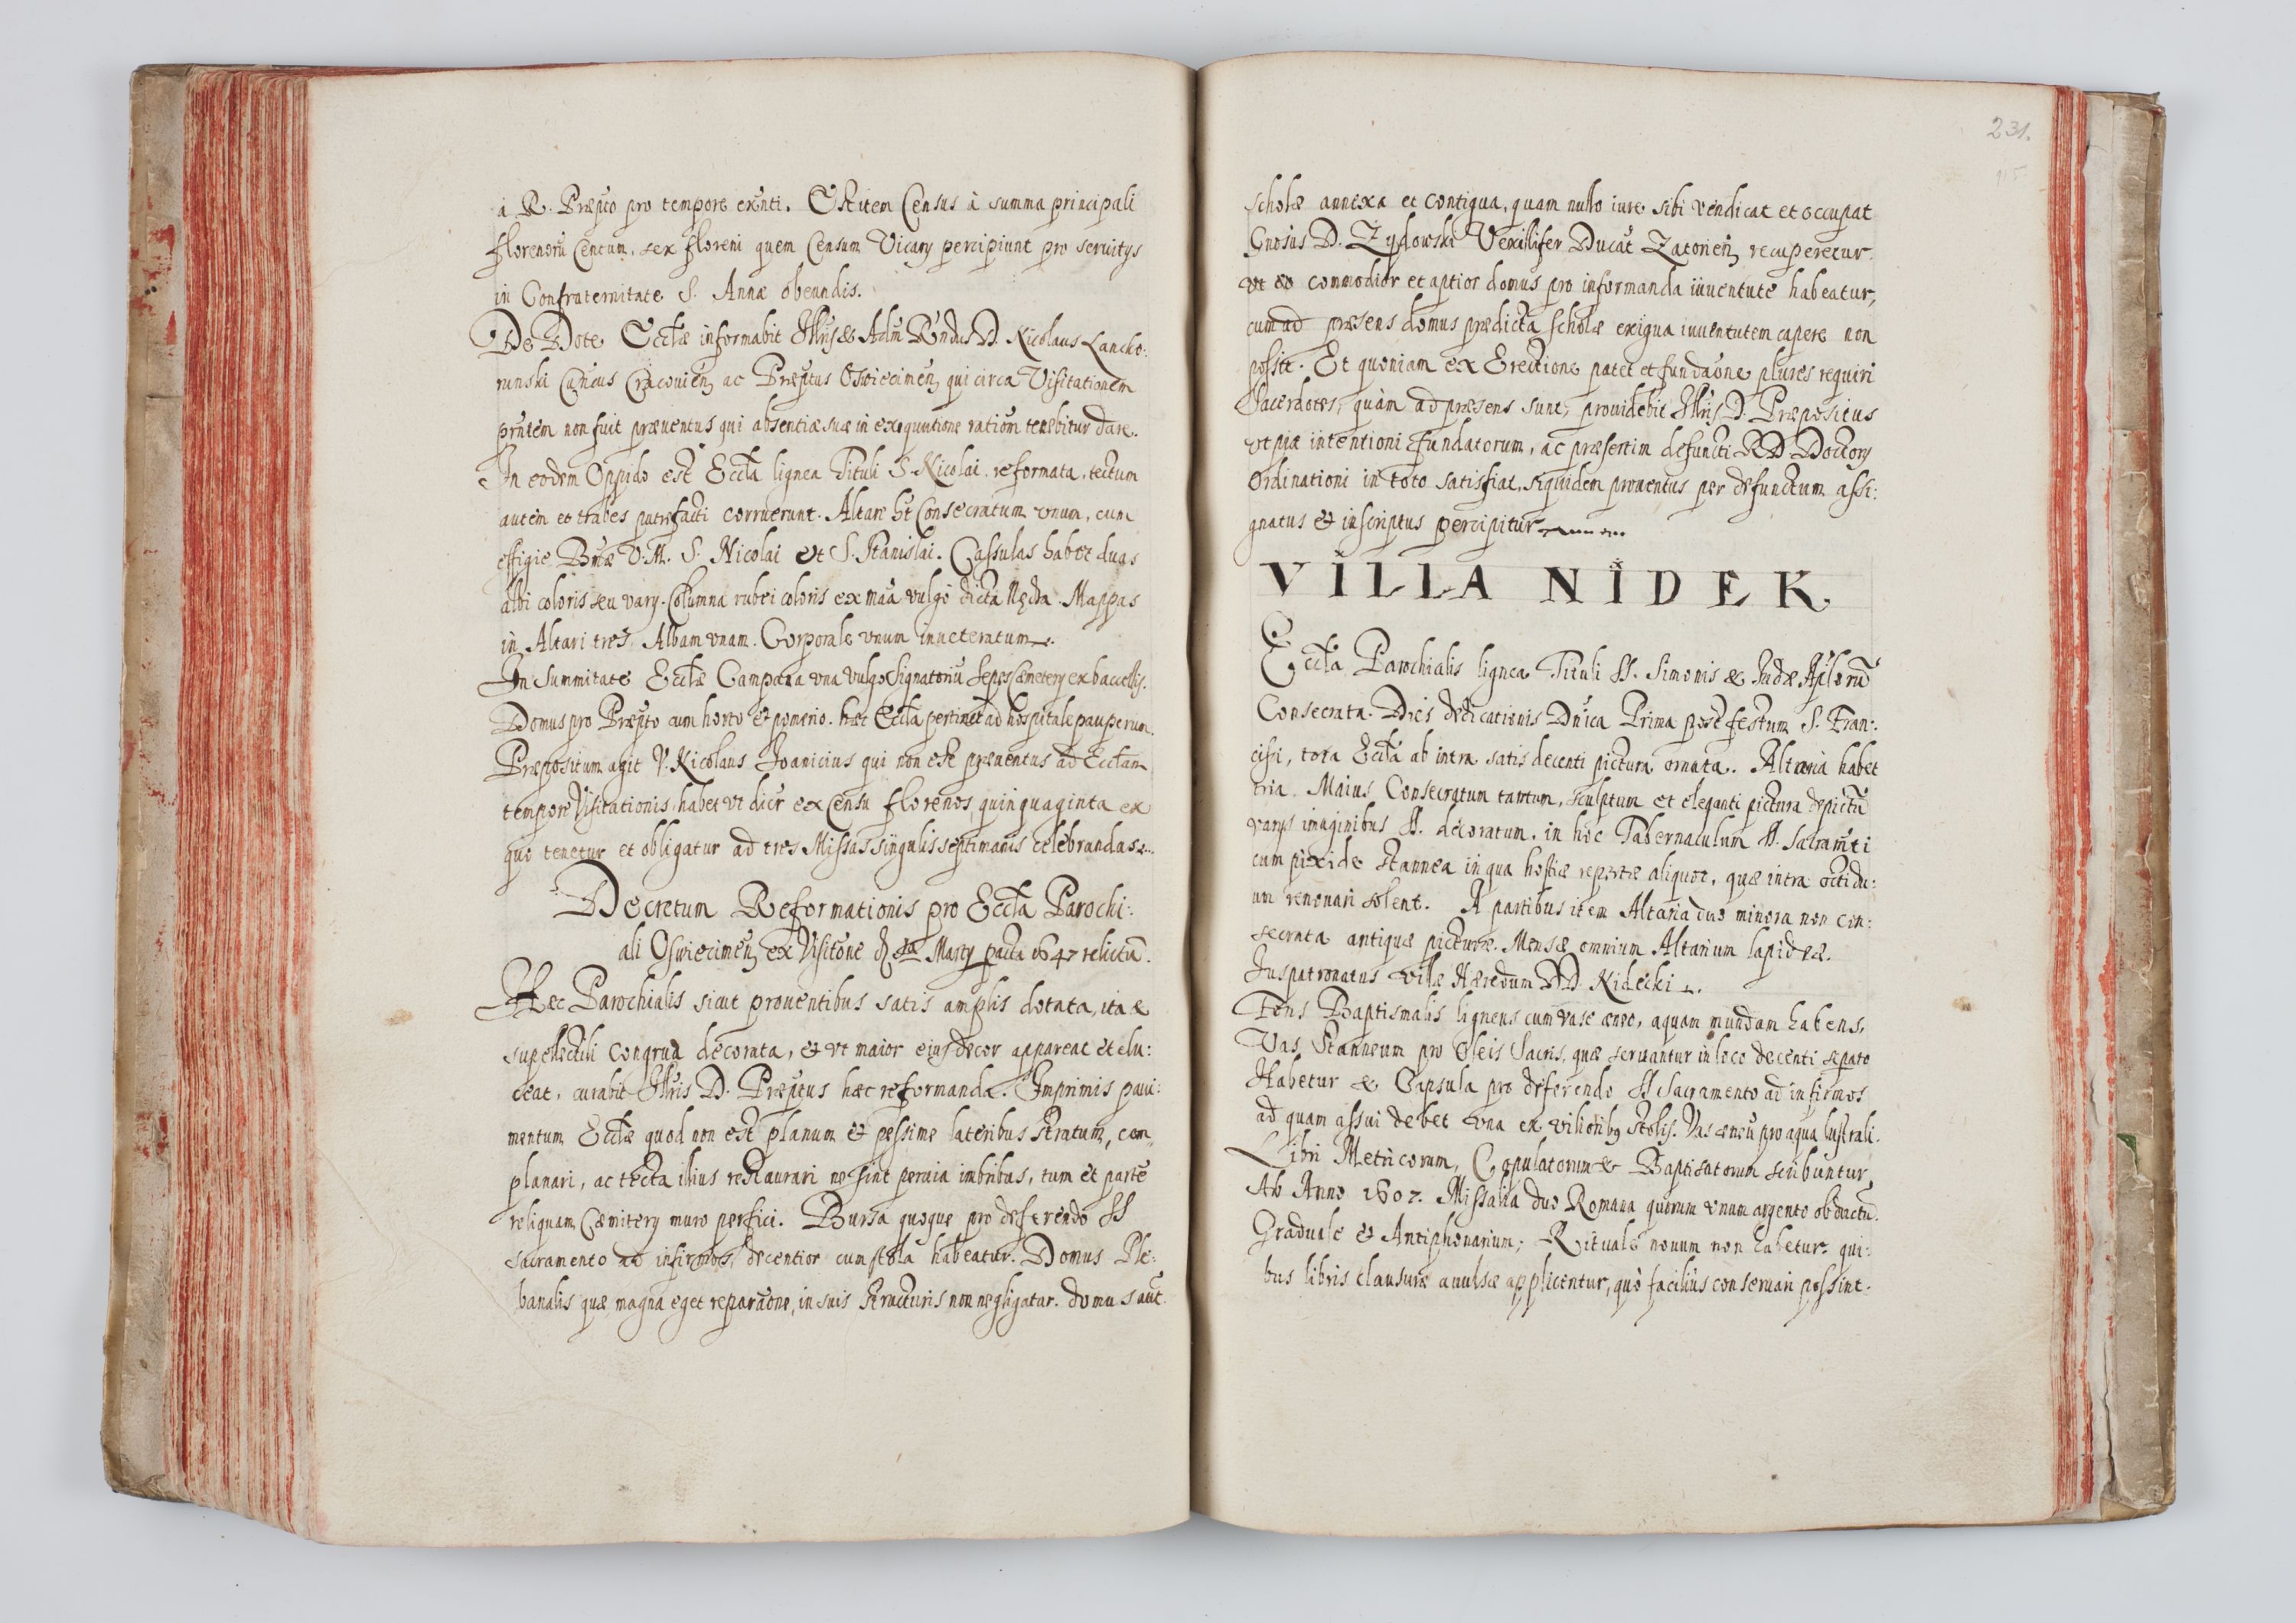 à R. Præpto pro tempore exnti. Est item Census à summa principali
florenorũ Centum, sex floreni quem Censum Vicarÿ percipiunt pro seruitÿs
in Confraternitate S. Annæ obeundis.
De Dote Ecclæ informabit Illris & Adm Rñdus D. Nicolaus Lancko:
runski Cañcus Cracouien, ac Præptus Oswiecimen, qui circa Visitationem
prñtem non fuit præuentus qui absentiæ suæ in exequutione ratiom tenebitur dare.
In eodem Oppido est Eccla lignea Tituli S. Nicolai reformata, tectum
autem et trabes putrefacti corruerunt. Altare ht Consecratum vnum, cum
effigie Btæ V. M. S. Nicolai et S. Stanislai. Cassulas habet duas
albi coloris seu varÿ. Columna rubei coloris ex maã vulgo dicta Mappas
in Altari tres, Albam vnam. Corporale vnum inueteratum.
In summitate Ecclæ Campana vna vulgo Signatoriũ Sepes Cæmeterÿ ex baccellis.
Domus pro Præpto cum horto et pomerio. hæc Eccla pertinet ad hospitale pauperum.
Præpositum agit V. Nicolaus Joanicius qui non est præuentus ad Ecclam
tempore Visitationis, habet vt dicit ex Censu florenos quinquaginta ex
quo tenetur et obligatur ad tres Missas singulis septimanis celebrandas.
Decretum Reformationis pro Eccla Parochi:
ali Oswiecimen, ex Visitõne Martÿ pacta 1647 relictũ.
Hæc Parochialis sicut prouentibus satis amplis dotata, ita &
supellectili congrua decorata, et vt maior eius decor appareat et elu:
ceat, curabit Illris D. Præptus hæc reformanda. Imprimis paui:
mentum Ecclæ quod non est planum et pessime lateribus stratum, com
planari, ac tecta illius restaurari ne sint peruia imbribus, tum et parte
reliquam Cæmiterÿ muro perfici. Bursa quoque pro deferendo SS
sacramento ad infirmos, decentior cum stola habeatur. Domus Ple:
banalis quæ magna eget reparãone, in suis structuris non negligatur. domus aut
231.
scholæ annexa et contigua, quam nullo iure sibi vendicat et occupat
Gñosus D. Zydowski Vexillifer Ducat Zatorien, recuperetur.
vt eo commodior et aptior domus pro informanda iuuentute habeatur,
cum ad præsens domus prædicta scholæ exigua iuuentutem capere non
possit. Et quoniam ex Erectione patet et fundãone plures requiri
Sacerdotes, quàm ad præsens sunt, prouidebit Illris D. Præpositus
vt piæ intentioni fundatorum, ac præsertim defuncti RD. Doctorÿ
Ordinationi in toto satisfiat, siquidem prouentus per defunctum assi:
gnatus et inscriptus percipitur
VILLA NIDEK
Eccla Parochialis lignea Tituli SS. Simonis & Judæ Aplorũ
Consecrata. Dies dedicationis Dñica Prima post festum S. Fran:
cisi, tota Eccla ab intra satis decenti pictura ornata. Altaria habet
tria. Maius Consecratum tantum, sculptum et eleganti pictura depictũ
varÿs imaginibus SS. decoratum. in hoc Tabernaculum SS. sacrañti
cum pixide stannea in qua hostiæ repertæ aliquot, quæ intra octidu:
um renouari solent. A partibus item Altaria duo minora non con:
secrata antiquæ picturæ. Mensæ omnium Altarium lapideæ.
Juspatronatus villæ Hæredum DD. Nidecki.
Fons Baptismalis ligneus cum vase æneo, aquam mundam habens,
Vas Stanneum pro Oleis Sacris, quæ seruantur in loco decenti sepato
Habetur & Capsula pro deferendo SS Sacramento ad infirmos
ad quam assui debet vna ex vilioribus stolis. Vas æneũ pro aqua lustrali.
Libri Metricorum, Copulatorum & Baptisatorum scribuntur
Ab Anno 1607. Missalia duo Romana quorum vnum argento obductũ.
Graduale et Antiphonarium; Rituale nouum non habetur qui:
bus libris clausuræ auulsæ applicentur, quò faciliùs conseruari possint.